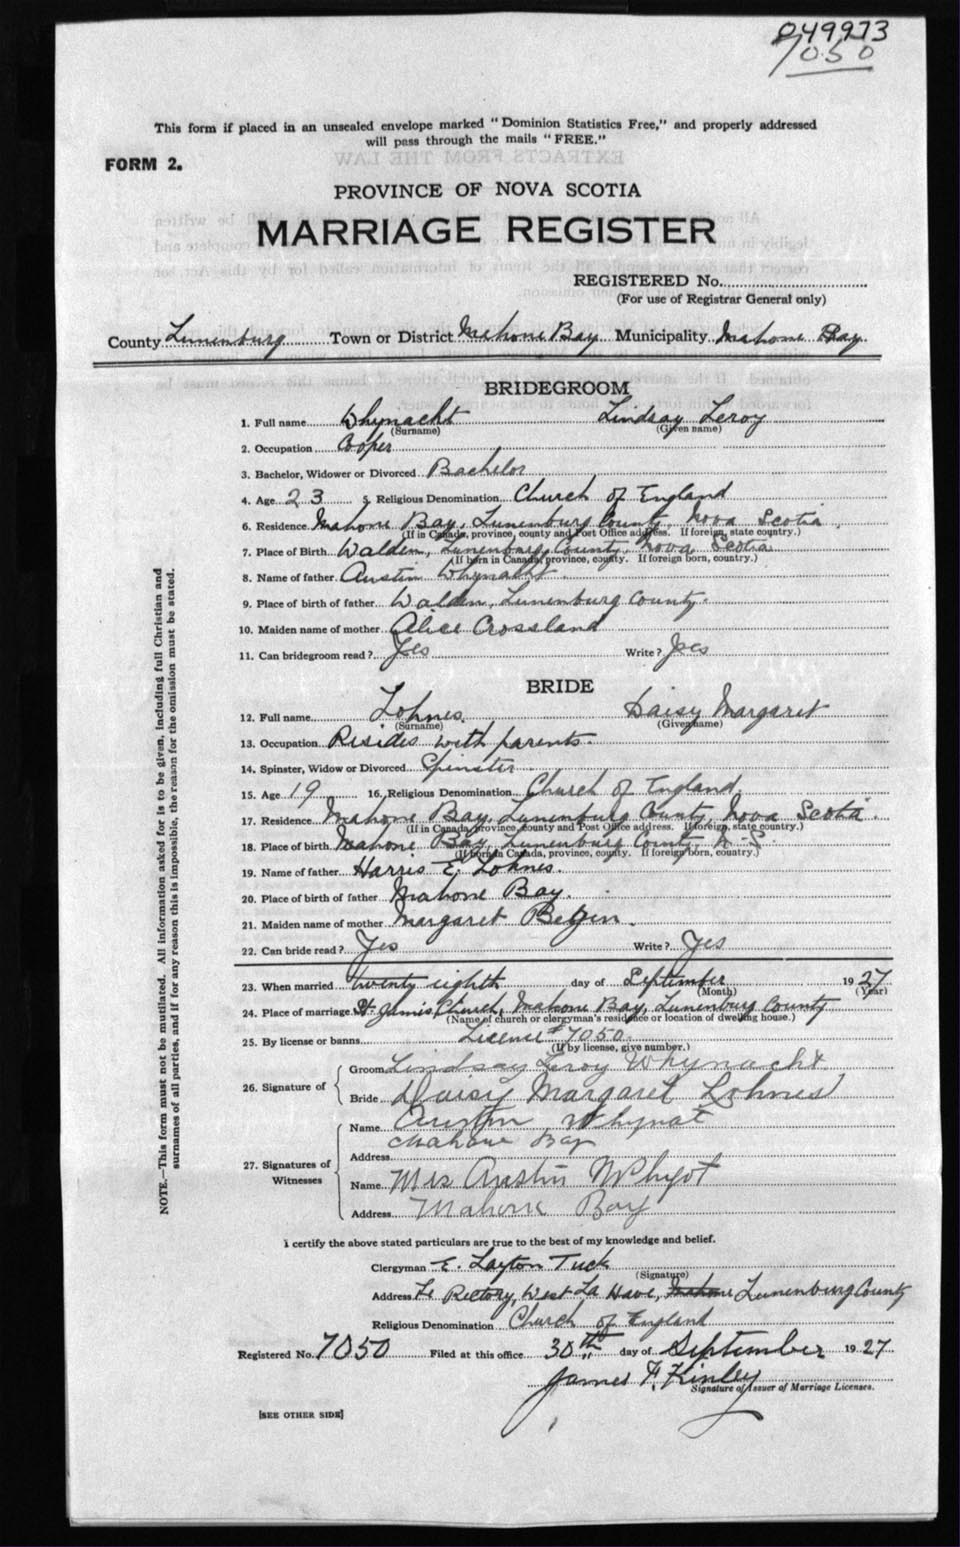 049973
7050
This form if placed in an unsealed envelope marked "Dominion Statistics Free," and properly addressed
will pass through the mails "FREE."
FORM 2.
PROVINCE OF NOVA SCOTIA
MARRIAGE REGISTER
REGISTERED No.
(For use of Registrar General only)
County Lunenburg Town or District Mahone Bay Municipality Mahone Bay.
BRIDEGROOM
1. Full name Whynacht Lindsay Leroy
(Surname) (Given name)
2. Occupation Cooper
3. Bachelor, Widower or Divorced Bachelor
4. Age 23 5. Religious Denomination Church of England
6. Residence Mahone Bay, Lunenburg County, Nova Scotia
(If in Canada, province, county and Post Office address. If foreign, state country.)
7. Place of Birth Walden, Lunenburg County, Nova Scotia
(If born in Canada, province, county. If foreign born, country.)
8. Name of father Austin Whynacht
9. Place of birth of father Walden, Lunenburg County.
10. Maiden name of mother Alice Crossland
11. Can bridegroom read? Yes Write? Yes
BRIDE
12. Full name Lohnes. Daisy Margaret
(Surname) (Given name)
13. Occupation Resides with parents.
14. Spinster, Widow or Divorced Spinster.
15. Age 19 16. Religious Denomination Church of England
17. Residence Mahone Bay, Lunenburg County, Nova Scotia.
(If in Canada, province, county and Post Office address. If foreign, state country.)
18. Place of birth Mahone Bay, Lunenburg County, N.S.
(If born in Canada, province, county. If foreign born, country.)
19. Name of father Harris E. Lohnes.
20. Place of birth of father Mahone Bay.
21. Maiden name of mother Margaret
22. Can bride read? Yes Write? Yes
23. When married twenty eighth day of September 1927
(Month) (Year)
24. Place of marriage St. James Church, Mahone Bay, Lunenburg County
(Name of church or clergyman's residence or location of dwelling house.)
25. By license or banns License #7050.
(If by license, give number.)
26. Signature of Groom Lindsay Leroy Whynacht
Bride Daisy Margaret Lohnes
27. Signatures of Witnesses
Name Austin Whynot
Mahone Bay
Address
Name Mrs Austin Whynot
Address Mahone Bay
I certify the above stated particulars are true to the best of my knowledge and belief.
Clergyman E. Layton Tuck
(Signature)
Address Rectory, West La Have, Mahone Lunenburg County
Religious Denomination Church of England
Registered No. 7050 Filed at this office 30th day of September 1927
James F. Kinley
Signature of Issuer of Marriage Licenses.
[SEE OTHER SIDE]
NOTE.—This form must not be mutilated. All information asked for is to be given, including full Christian and
surnames of all parties, and if for any reason this is impossible, the reason for the omission must be stated.